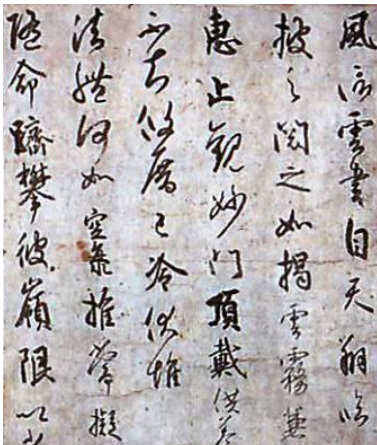 風信雲書自天翔臨
披之閲之如掲雲霧兼
恵止観妙門頂戴供養
不知攸厝已冷伏惟
法體何如空海推常擬
随命躋攀彼嶺限以少